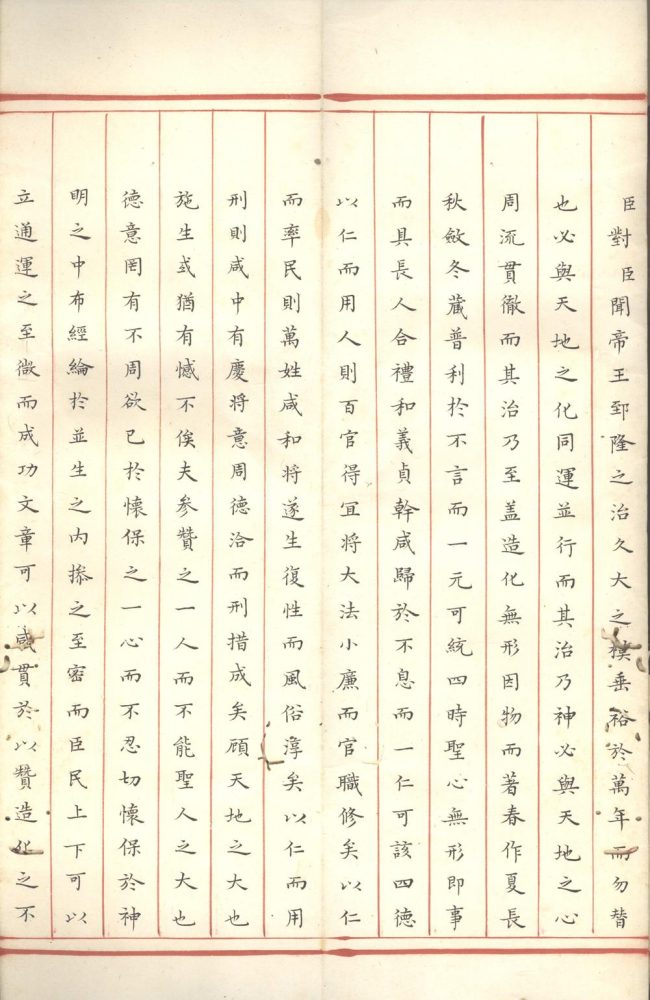 臣對臣聞帝王郅隆之治久大之模垂裕於萬年而勿替
也必與天地之化同運並行而其治乃神必與天地之心
周流貫徹而其治乃至盖造化無形因物而著春作夏長
秋斂冬藏普利於不言而一元可統四時聖心無形即事
而具長人合禮和義貞幹咸歸於不息而一仁可該四德
以仁而用人則百官得宜將大法小廉而官職修矣以仁
而率民則萬姓咸和將遂生復性而風俗淳矣以仁而用
刑則咸中有慶將意周德洽而刑措成矣顧天地之大也
施生或猶有憾不俟夫參贊之一人而不能聖人之大也
德意罔有不周欲已於懷保之一心而不忍切懷保於神
明之中布經綸於並生之內摻之至密而臣民上下可以
立通運之至微而成功文章可以咸貫於以贊造化之不